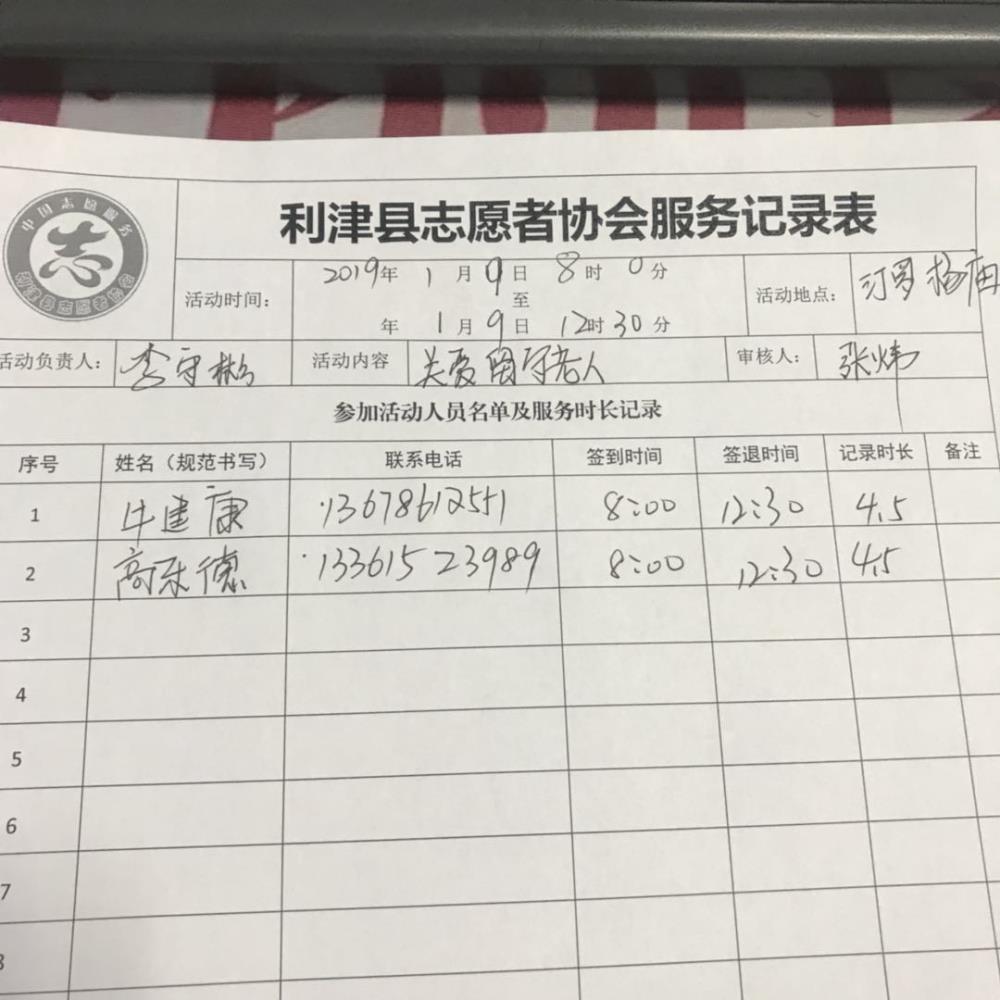 中国志愿服务
志
利津县志愿者协会
利津县志愿者协会服务记录表
活动时间: 2019年 1月9日 8时0分
至
年 1月9日 12时30分
活动地点: 汀罗杨庙
活动负责人: 李守彬 活动内容 关爱留守老人 审核人: 张炜
参加活动人员名单及服务时长记录
序号 姓名（规范书写） 联系电话 签到时间 签退时间 记录时长 备注
1 牛建康 13678612551 8:00 12:30 4.5
2 高乐德 13361523989 8:00 12:30 4.5
3
4
5
6
7
8